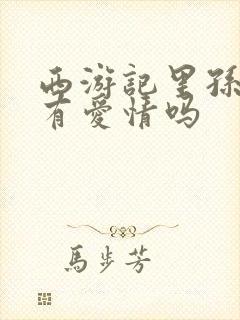 西游記里孫
有愛情吗
馬步芳